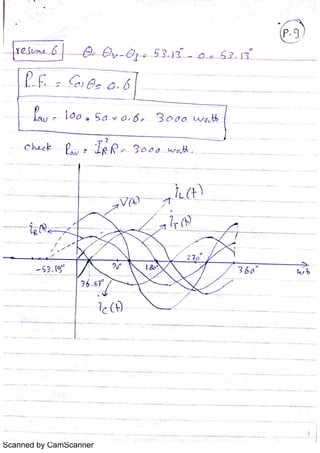 P.9
resume 6
θ = θv - θI = 53.13° - 0 = 53.13°
P.F. = Cos θ = 0.6
Pav = 100 * 50 * 0.6 = 3000 watt
check Pav = I²R R = 3000 watt.
V(t)
iL(t)
iR(t)
iT(t)
-53.13°
36.87°
90°
180°
270°
360°
wt
ic(t)
Scanned by CamScanner